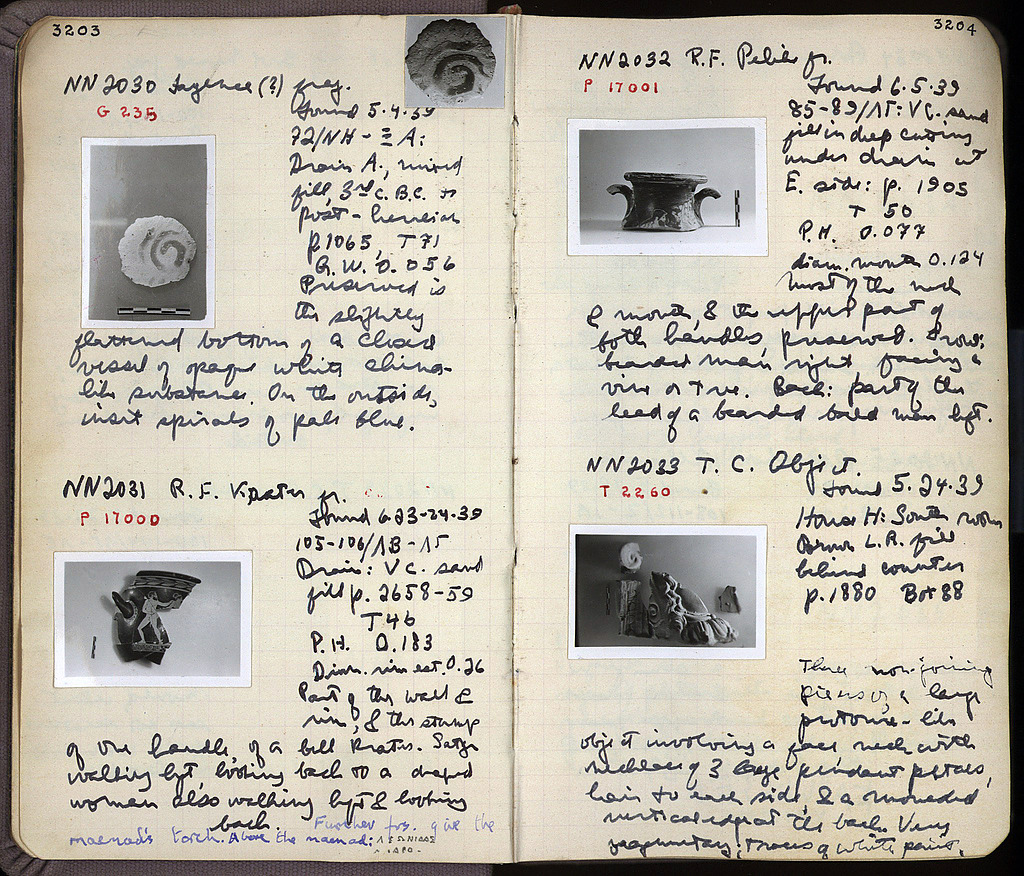 3203
NN2030 Fayence(?) frag.
G 235
Found 5.4.39
72/NH - Ξ A:
Drain A, mixed
fill, 3rd c. B.C. to
post-herulian
p. 1065, T 71
G.W. 0.056
Preserved is
the slightly
flattened bottom of a closed
vessel of opaque white china-
like substance. On the outside,
inset spirals of pale blue.
NN2031 R.F. Krater fr.
P 17000
Found 6.23-24-39
105-106/ΛB-ΛΓ
Drain: V c. sand
fill p. 2658-59
T 46
P.H. 0.183
Diam. rim est. 0.26
Part of the wall &
rim, & the stump
of one handle of a bell krater. Satyr
walking left, looking back to a draped
woman also walking left & looking
back. Further frs. give the
maenad's torch. Above the maenad:
3204
NN2032 R.F. Pelike fr.
P 17001
Found 6.5.39
85-89/ΛΓ: V c. sand
fill in deep cutting
under drain at
E. side: p. 1905
T 50
P.H. 0.077
diam. mouth 0.124
Most of the neck
& mouth, & the upper part of
both handles, preserved. Front:
bearded man, right, facing a
vine or tree. Back: part of the
head of a bearded bald man left.
NN2033 T.C. Object.
T 2260
Found 5.24.39
House H: South room
Brown L.R. fill
behind counter
p. 1880 Box 88
Three non-joining
pieces of a large
protome-like
object involving a face, neck with
necklace of 3 large pendant petals,
hair to each side, & a moulded
vertical edge at the back. Very
fragmentary; traces of white paint.